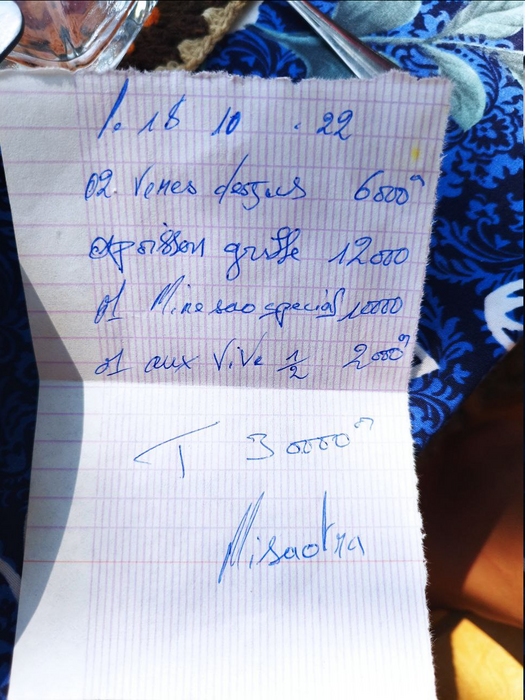 1. 18 10 . 22
02. Verres des jus 6000
01 poisson grille 12000
01 Mine sao special 10000
01 aux ViVe 1/2 2000
T 30000
Misaotra